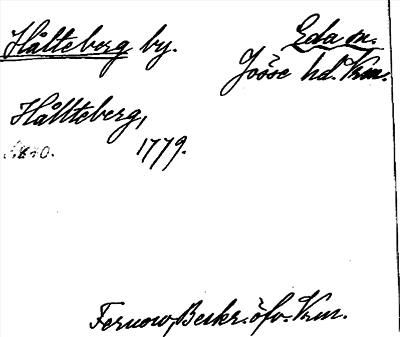 Hålteberg by. Eda sn.
Jösse hd. Vrm.
Hållteberg,
1779.
Fernow, Beskr. öfv. Vrm.